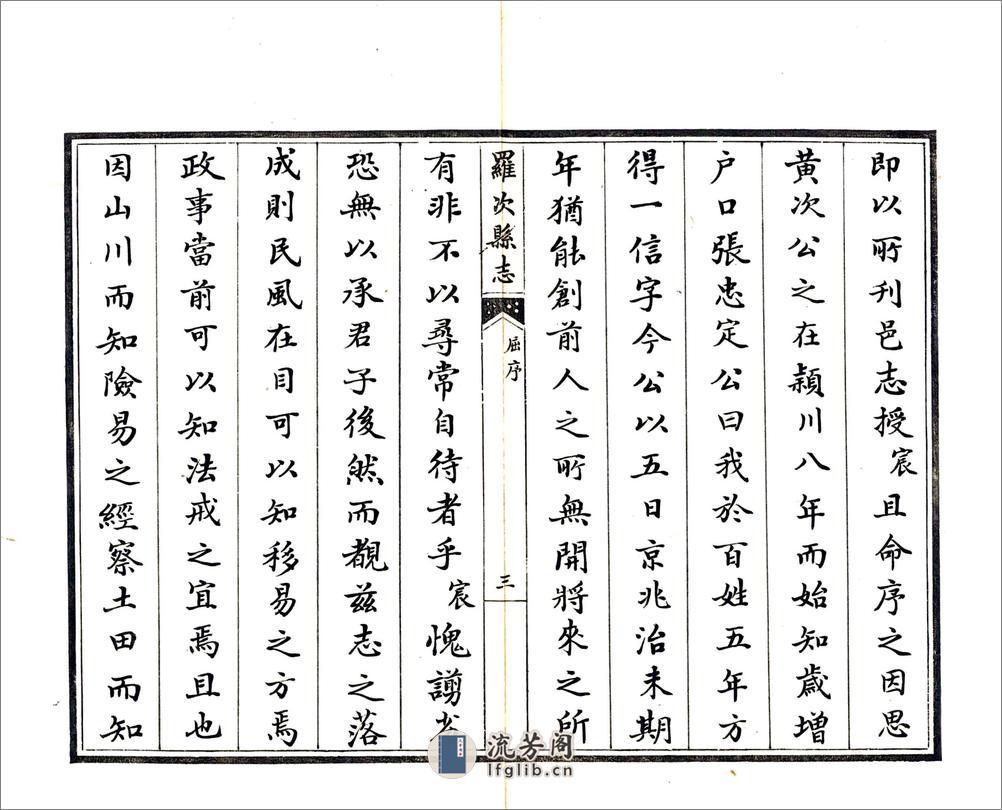 即以所刊邑志授宸且命序之因思
黄次公之在潁川八年而始知歲增
户口張忠定公曰我於百姓五年方
得一信字今公以五日京兆治未期
年猶能創前人之所無開將來之所
羅次縣志
屈序
三
有非不以尋常自待者乎宸愧謭劣
恐無以承君子後然而覩兹志之落
成則民風在目可以知移易之方焉
政事當前可以知法戒之宜焉且也
因山川而知險易之經察土田而知
流芳阁
lfglib.cn